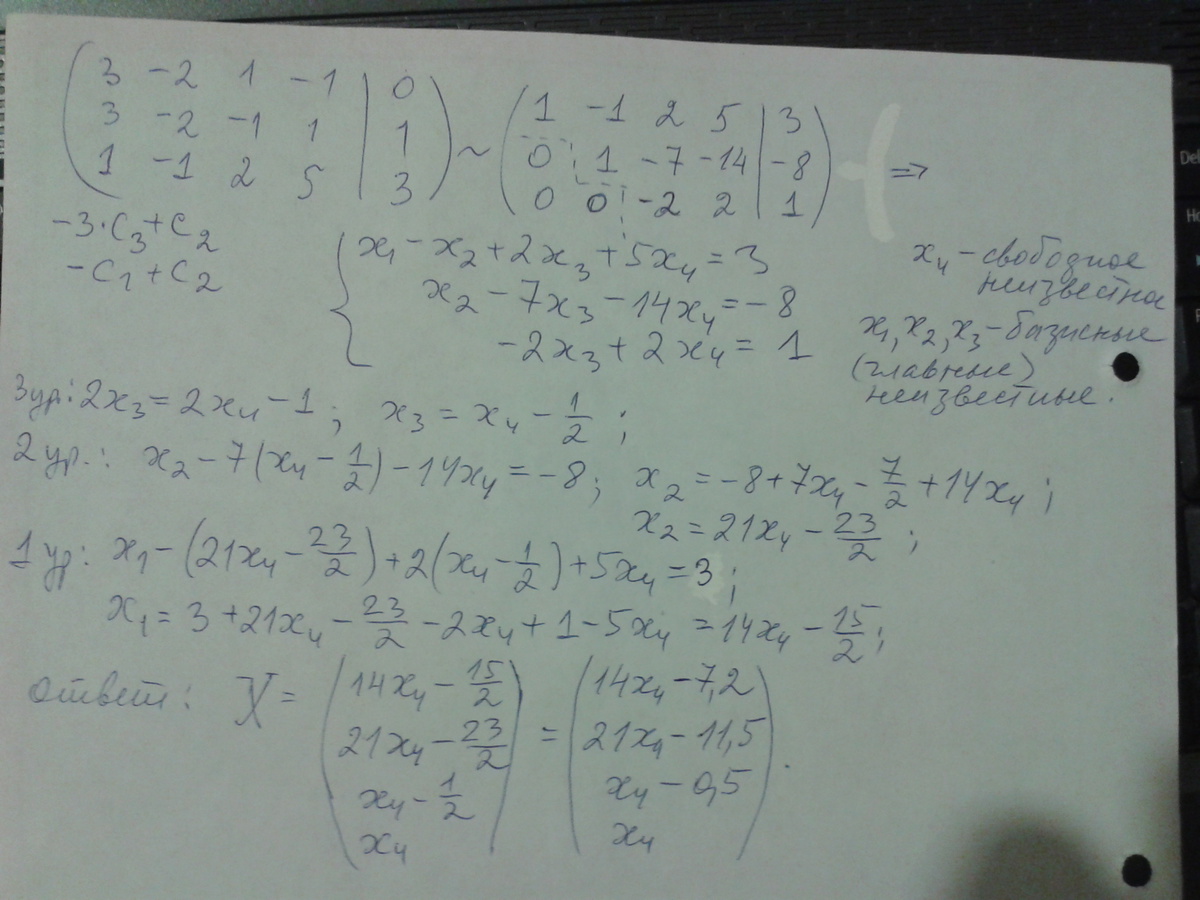 3 -2 1 -1 | 0
3 -2 -1 1 | 1
1 -1 2 5 | 3
~
1 -1 2 5 | 3
0 1 -7 -14 | -8
0 0 -2 2 | 1
⇒
-3·C₃+C₂
-C₁+C₂
x₁ - x₂ + 2x₃ + 5x₄ = 3
x₂ - 7x₃ - 14x₄ = -8
-2x₃ + 2x₄ = 1
x₄ - свободное
неизвестное
x₁, x₂, x₃ - базисные
(главные)
неизвестные.
3ур: 2x₃ = 2x₄ - 1; x₃ = x₄ - 1/2;
2ур.: x₂ - 7(x₄ - 1/2) - 14x₄ = -8; x₂ = -8 + 7x₄ - 7/2 + 14x₄;
x₂ = 21x₄ - 23/2;
1ур: x₁ - (21x₄ - 23/2) + 2(x₄ - 1/2) + 5x₄ = 3;
x₁ = 3 + 21x₄ - 23/2 - 2x₄ + 1 - 5x₄ = 14x₄ - 15/2;
ответ: X =
14x₄ - 15/2
21x₄ - 23/2
x₄ - 1/2
x₄
=
14x₄ - 7,2
21x₄ - 11,5
x₄ - 0,5
x₄
.